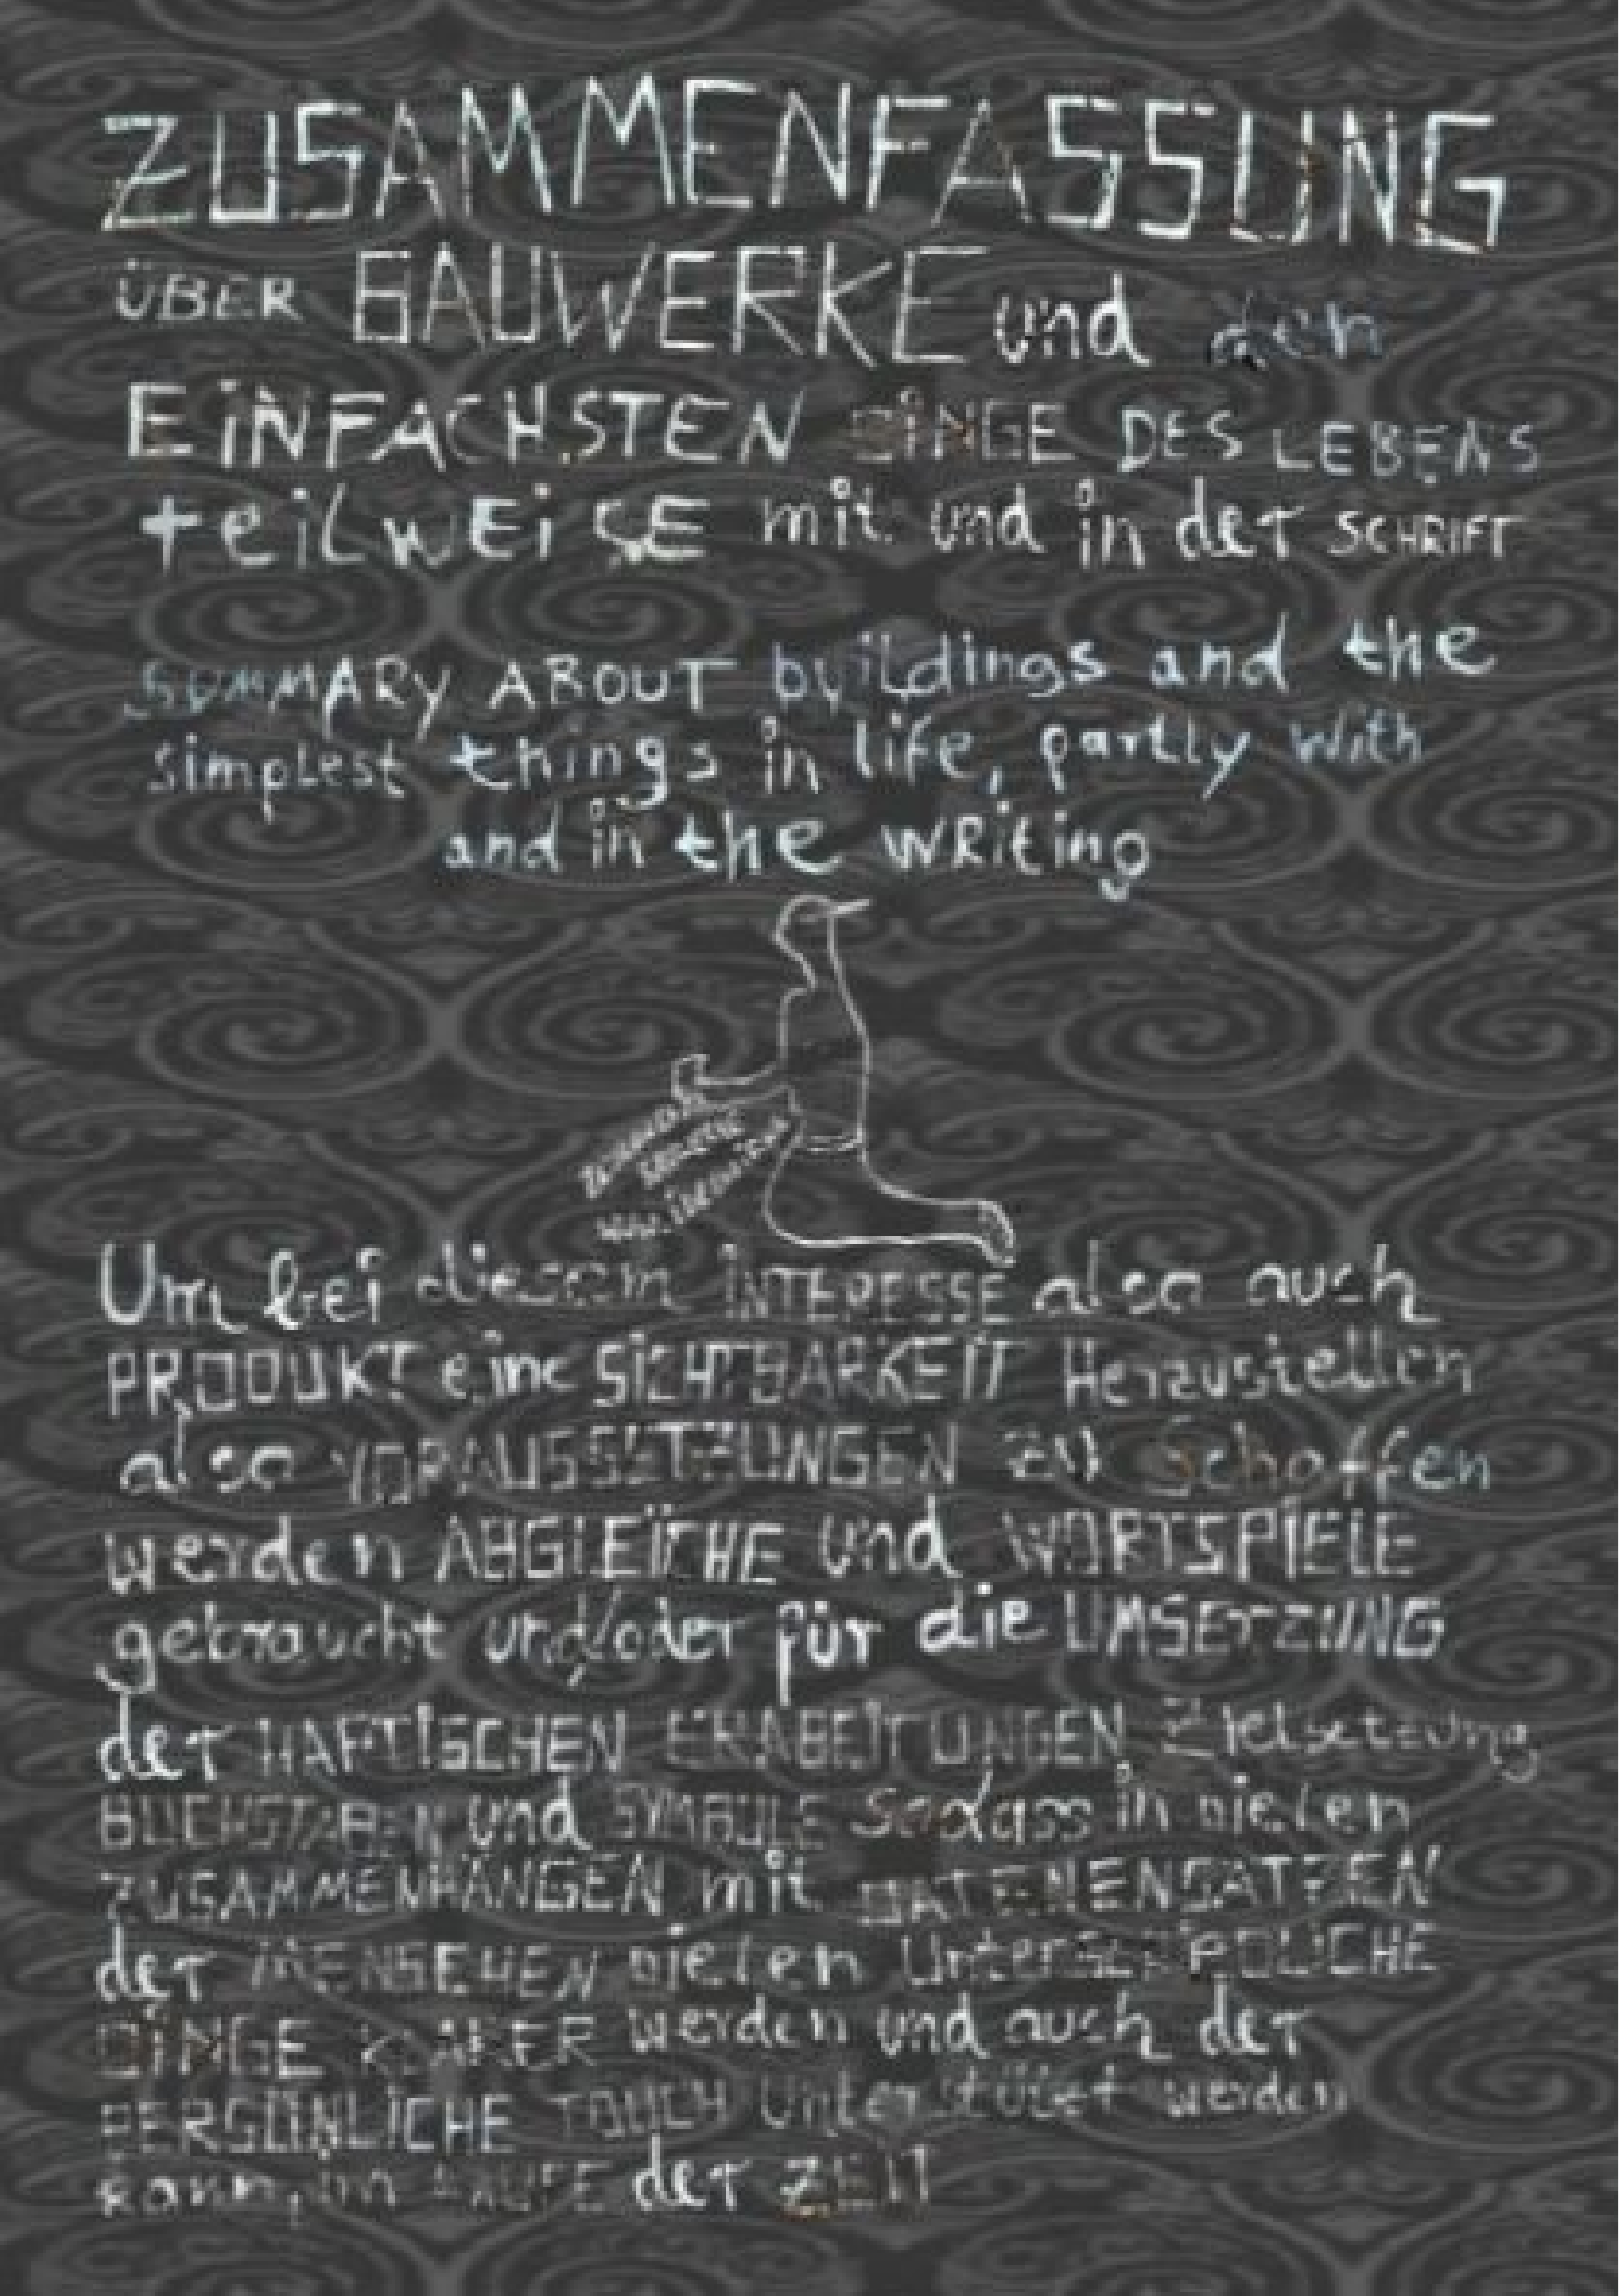 ZUSAMMENFASSUNG
ÜBER BAUWERKE und den
EiNFACHSTEN DiNGE DES LEBENS
teilwEiSE mit und in der SCHRIFT
SUMMARY ABOUT buildings and the
simpLest things in life, partly with
and in the wRiting
Um bei diesem iNTERESSE also auch
PRODUKT eine SiCHTBARKEIT Herzustellen
also VORAUSSETZUNGEN zu Schaffen
werden ABGLEiCHE und WORTSPiELE
gebraucht und/oder für die UMSETZUNG
der HAPTISCHEN ERABEITUNGEN Zielsetzung
BUCHSTABEN und SYMBOLE Sodass in vielen
ZUSAMMENHÄNGEN mit DATENENSÄTZEN
der MENSCHEN vielen UnterSCHiEDLICHE
DiNGE KLARER werden und auch der
PERSÖNLICHE TOUCH Unterstützt werden
kann, im LAUFE der ZEIT